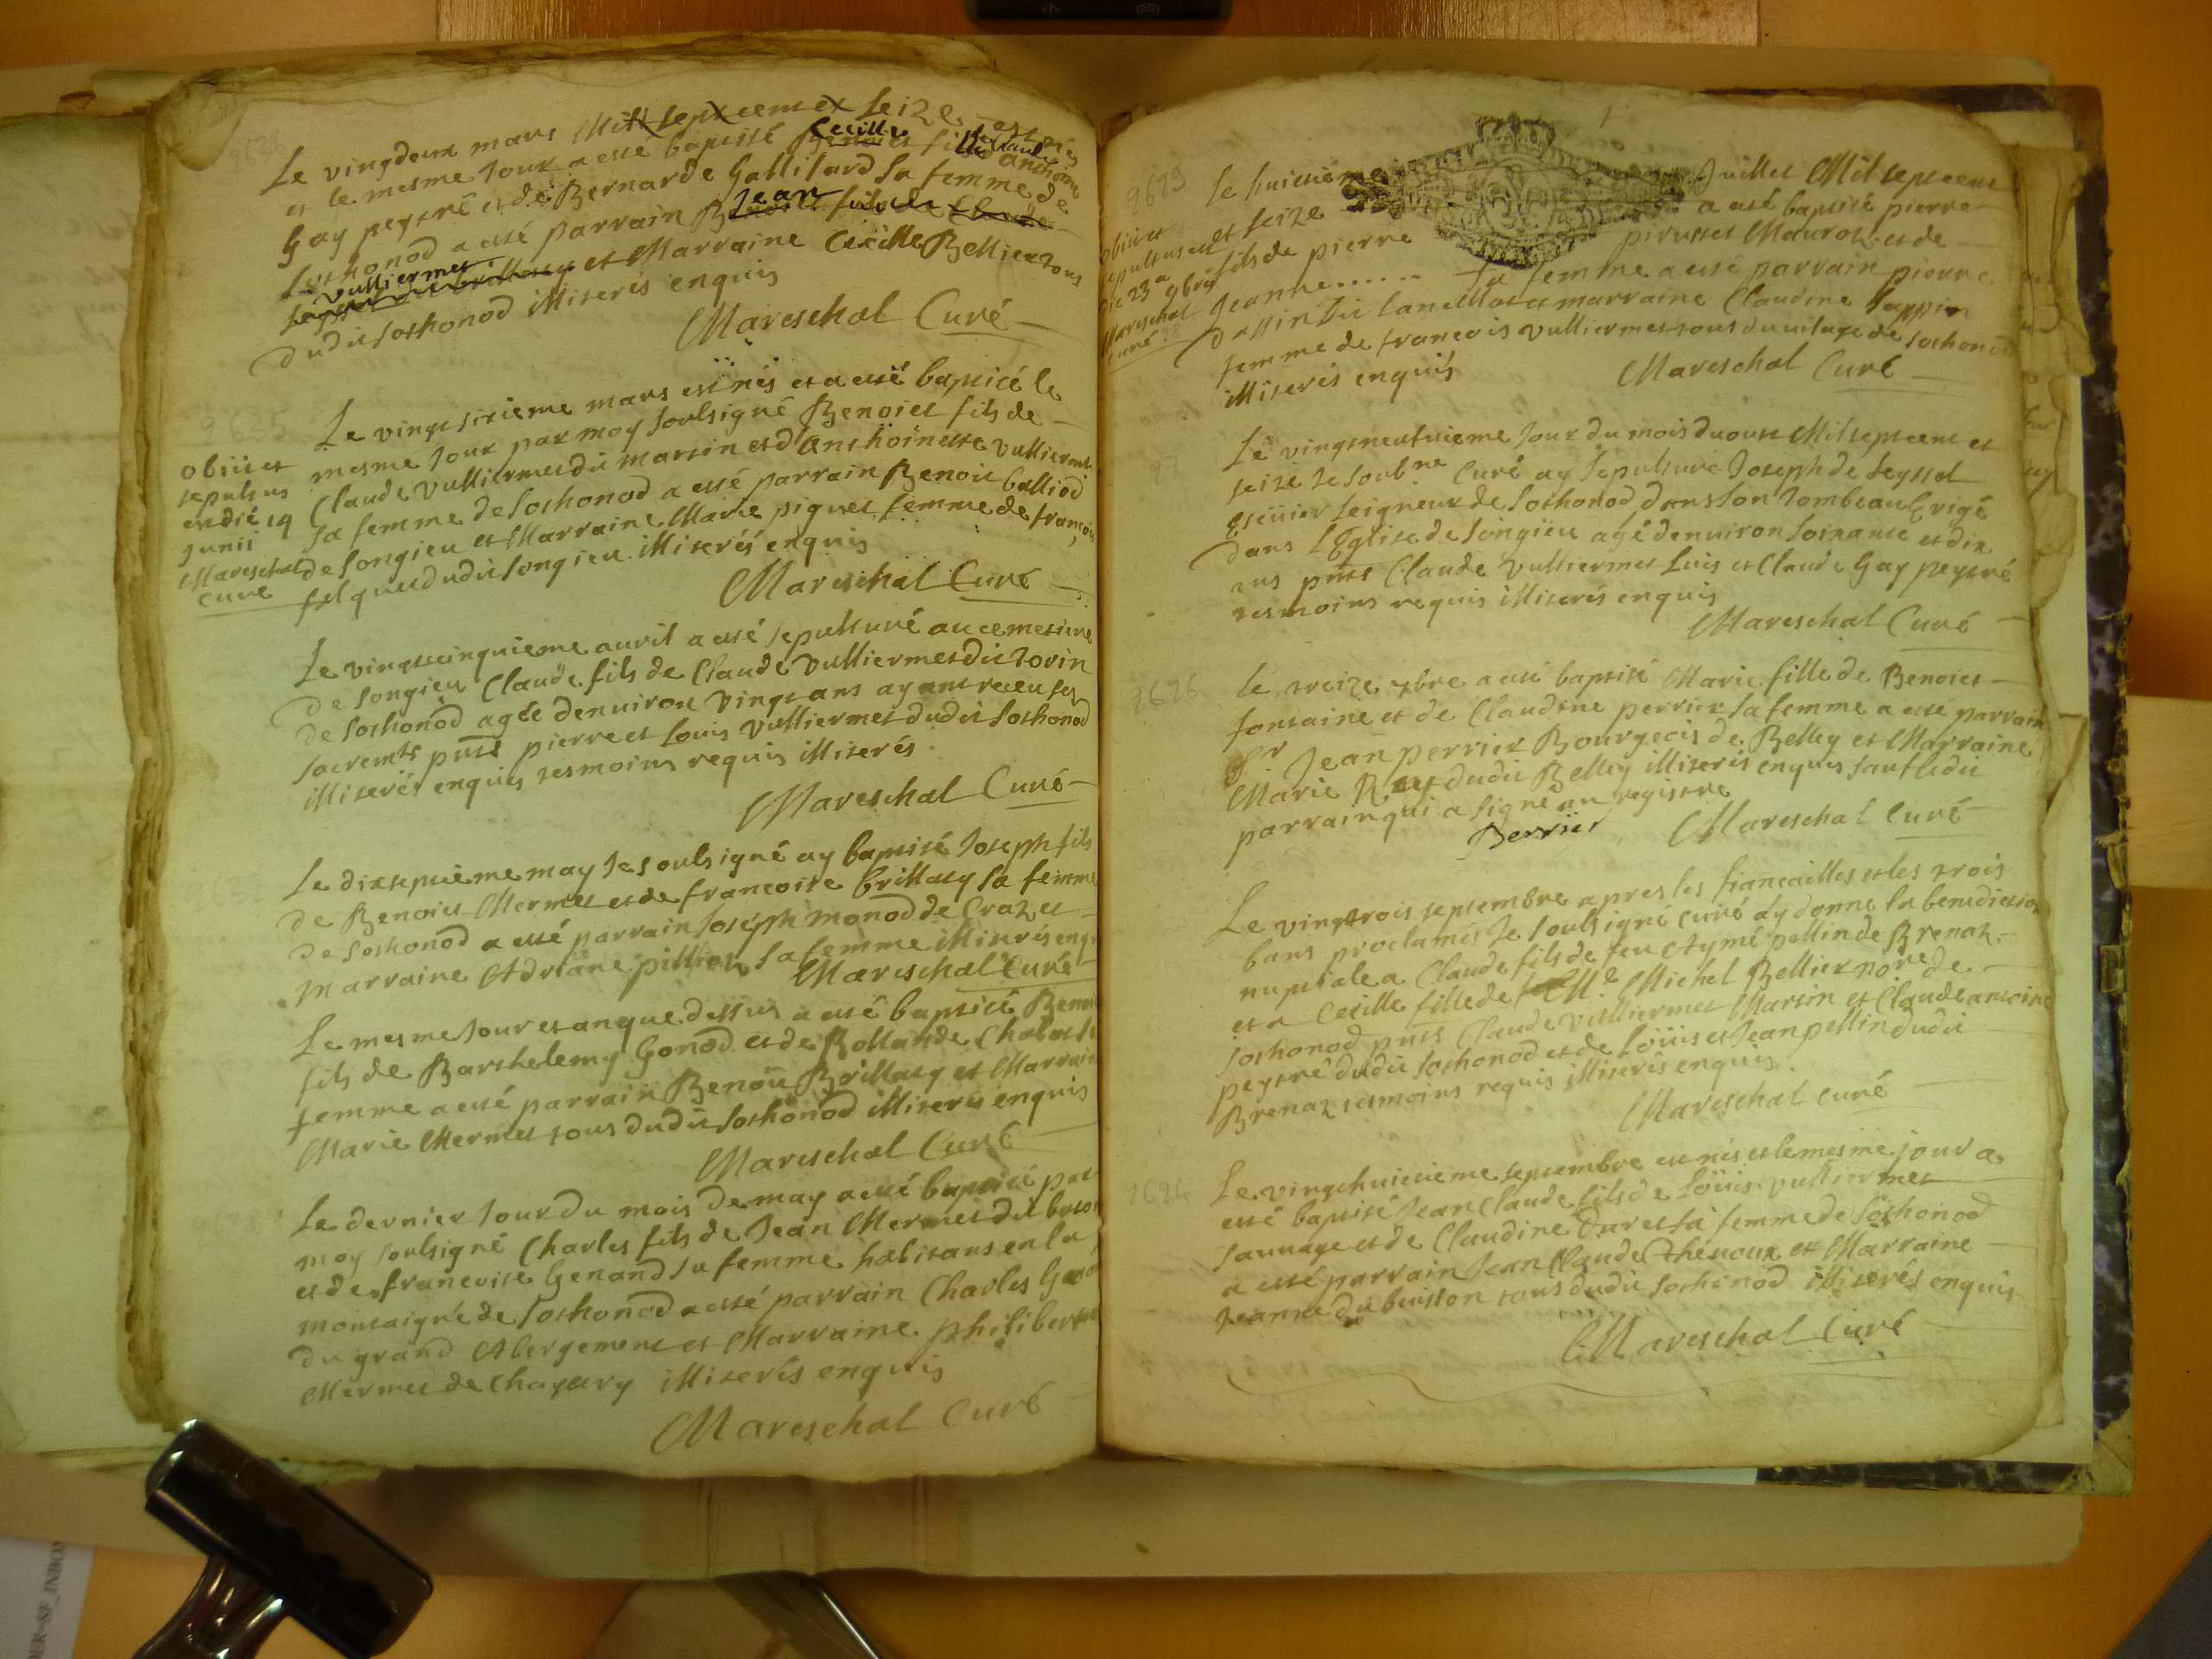 Le vingdeux mars Mil sept cent et seize est née
et le mesme Jour a esté baptisé Cecille fille de Claude anthoine
Gay peytré et de Bernarde Gallilard sa femme de
Sothonod a esté parrain Jean
vulliermet et Marraine Cecille Bellier tous
dudit Sothonod illiterés enquis
Mareschal Curé
Le vingt sixieme mars est nés et a esté baptisé le
mesme Jour par moy soulsigné Benoict fils de
Claude Vulliermet dit martin et d'Anthoinette vulliermet
sa femme de Sothonod a esté parrain Benoit balliod
de Songieu et Marraine Marie piguet femme de françois
dudit Songieu illiterés enquis
Mareschal Curé
obiit et
sepultus
en die 14
Junii
Mareschal
curé
Le vingtcinquieme auril a esté sepulturé au cemetiere
de Songieu Claude fils de Claude Vulliermet dit Jorin
de Sothonod agée denuiron vingt ans ayant receu ses
sacremts pnts pierre et Louis Vulliermet dudit Sothonod
illiterés enquis tesmoins requis illiterés
Mareschal Curé
Le dixseptieme may Je soulsigné ay baptisé Joseph fils
de Benoict Mermet et de francoise brillacy sa femme
de Sothonod a esté parrain Joseph monod de Craz et
marraine Adriane pillion sa femme illiterés
Mareschal Curé
Le mesme Jour et an que dessus a esté baptisé
fils de Barthelemy Gonod et de Rollande
femme a esté parrain Benoit Brillacy et Marraine
Marie Mermet tous dudit Sothonod illiterés enquis
Mareschal Curé
Le dernier Jour du mois de may a esté baptisé par
moy soulsigné Charles fils de Jean Mermet dit
et de francoise Genand sa femme habitans en la
montaigne de Sothonod a esté parrain Charles
du grand Abergement et Marraine philiberte
Mermet de illiterés enquis
Mareschal Curé
2629
Le huictieme Juillet Mil sept cent
et seize a esté baptisé pierre
fils de pierre et de
Jeanne...... sa femme a esté parrain pierre
et marraine Claudine
femme de francois vulliermet tous du vilage de Sothonod
illiterés enquis
Mareschal Curé
obiit et
sepultus est
die 23a
9bris
Mareschal
curé
Le vingtneufuieme Jour du mois duoust Mil sept cent et
seize Je soubne Curé ay sepulturé Joseph de Seyssel
Escuier seigneur de Sothonod dans son tombeau Erigé
dans L'Eglise de Songieu agé denuiron soixante et dix
ans pnts Claude Vulliermet Luis et Claude Gay peytré
tesmoins requis illiterés enquis
Mareschal Curé
2626
le treize 7bre a esté baptisé Marie fille de Benoict
fontaine et de Claudine perrier sa femme a esté parrain
Sr Jean perrier Bourgeois de Belley et Marraine
Marie dudit Belley illiterés enquis sauf ledit
parrain qui a signé au registre
Perrier Mareschal Curé
Le vingtrois septembre apres les fiancailles et les trois
bans proclamés Je soulsigné curé ay donné la benediction
nuptiale a Claude fils de feu Aymé pellin de Brenaz
et a Cecille fille de Me Michel Bellier nore de
Sothonod pnts Claude vulliermet Martin et Claude antoine
peytré dudit Sothonod et de Loüis et Jean pellin dudit
Brenaz tesmoins requis illiterés enquis
Mareschal curé
Le vingthuictieme septembre est nés et le mesme jour a
esté baptisé Jean Claude fils de Loüis vulliermet
sauuage et de Claudine Duret sa femme de Sothonod
a esté parrain Jean Claude Thenoux et Marraine
Jeanne du buisson tous dudit Sothonod illiterés enquis
Mareschal Curé